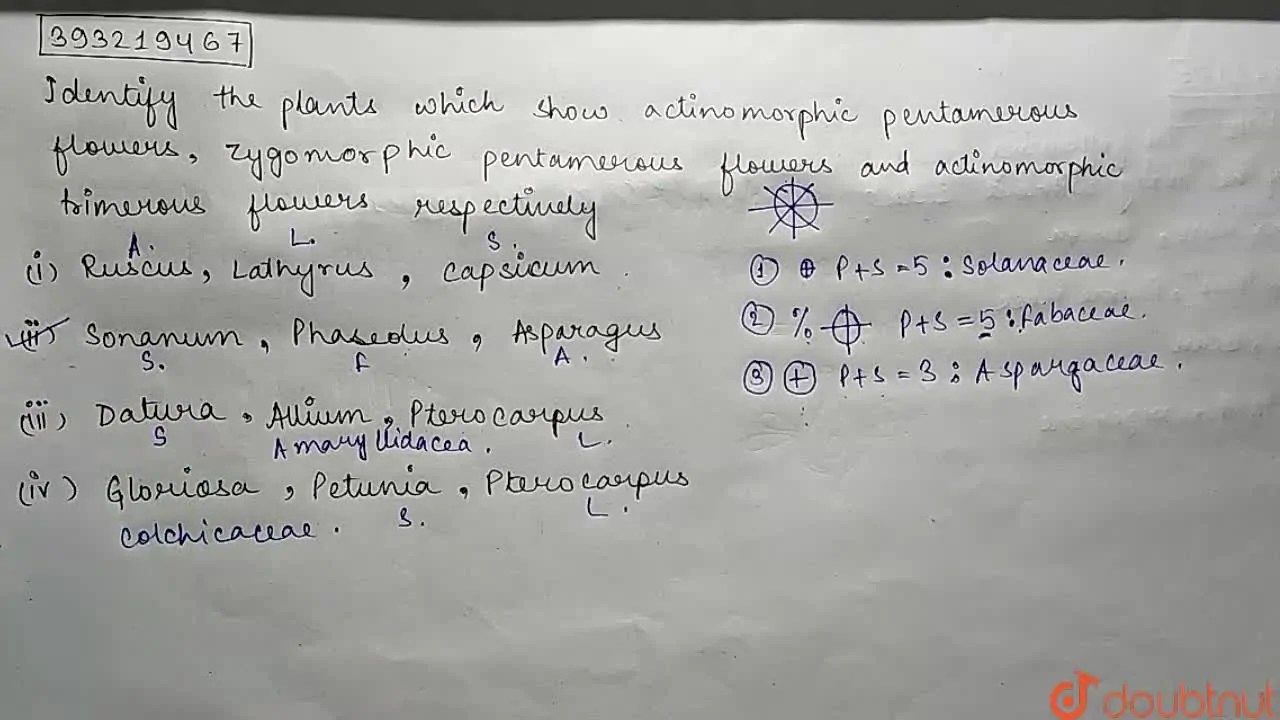 393219467
Identify the plants which show actinomorphic pentamerous
flowers, zygomorphic pentamerous flowers and actinomorphic
trimerous flowers respectively
A. L. S.
(i) Ruscus, Lathyrus, Capsicum.
(ii) Sonanum, Phaseolus, Asparagus
S. F A.
(iii) Datura, Allium, Pterocarpus
S Amaryllidacea. L.
(iv) Gloriosa, Petunia, Pterocarpus
Colchicaceae. S. L.
① ⊕ P+S = 5 : Solanaceae.
② % P+S = 5 : Fabaceae.
③ ⊕ P+S = 3 : Aspargaceae.
doubtnut